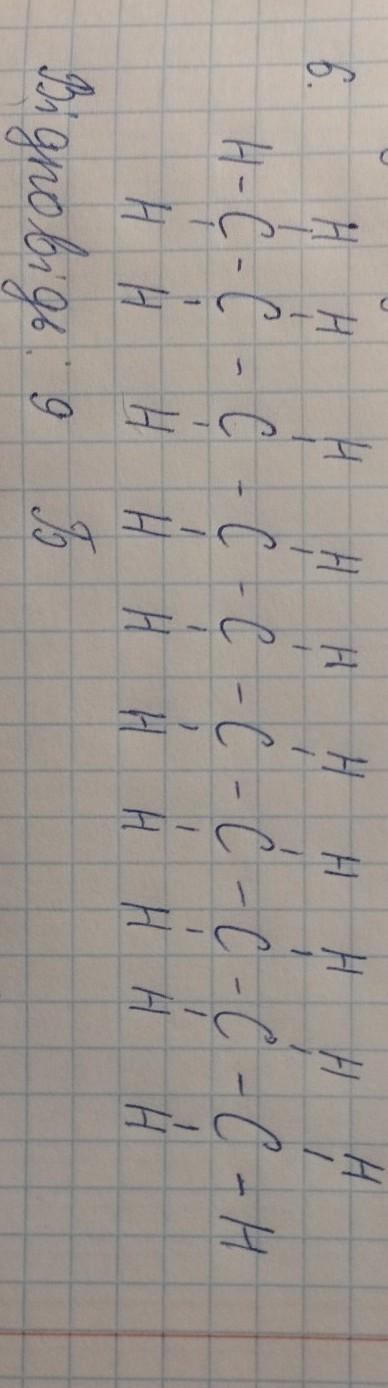 6.
H H H H H H H H H H
H - C - C - C - C - C - C - C - C - C - C - H
H H H H H H H H H H
Відповідь: 9 Б